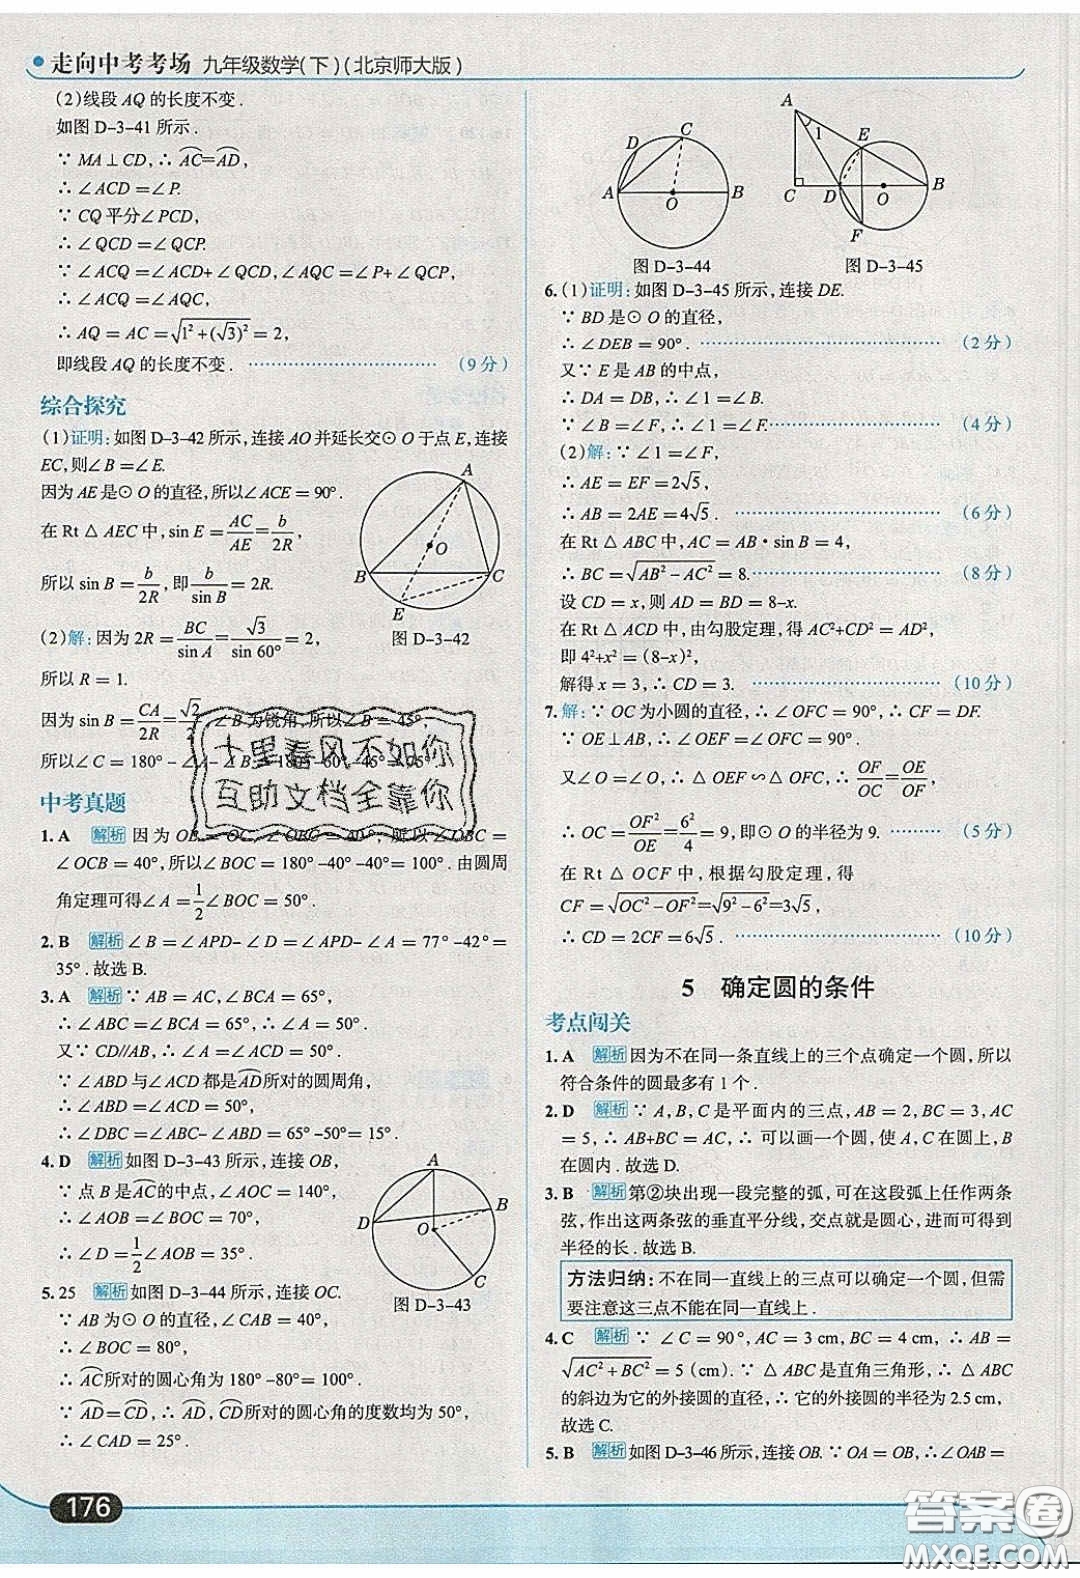 走向中考考场 九年级数学(下)(北京师大版)
(2)线段 AQ 的长度不变.
如图 D-3-41 所示.
∵ MA⊥CD,∴ A͡C=A͡D,
∴ ∠ACD=∠P.
∵ CQ 平分∠PCD,
∴ ∠QCD=∠QCP.
∵ ∠ACQ=∠ACD+∠QCD,∠AQC=∠P+∠QCP,
∴ ∠ACQ=∠AQC,
∴ AQ=AC=√(1²+(√3)²)=2,
即线段 AQ 的长度不变. ………………………… (9分)
综合探究
(1)证明:如图 D-3-42 所示,连接 AO 并延长交⊙O 于点 E,连接
EC,则∠B=∠E.
因为 AE 是⊙O 的直径,所以∠ACE=90°.
在 Rt△AEC 中,sin E=AC/AE=b/2R,
所以 sin B=b/2R,即b/sin B=2R.
(2)解:因为 2R=BC/sin A=√3/sin 60°=2,
所以 R=1.
A
B
C
E
O
图 D-3-42
因为 sin B=CA/2R=√2/2,∠B 为锐角,所以∠B=45°,
所以∠C=180°
十里春风不如你
互助文档全靠你
中考真题
1. A 解析 因为 OB=OC,∠OBC=40°,所以∠OBC=
∠OCB=40°,所以∠BOC=180°-40°-40°=100°.由圆周
角定理可得∠A=1/2∠BOC=50°.
2. B 解析 ∠B=∠APD-∠D=∠APD-∠A=77°-42°=
35°.故选 B.
3. A 解析 ∵ AB=AC,∠BCA=65°,
∴ ∠ABC=∠BCA=65°,∴ ∠A=50°.
又∵ CD//AB,∴ ∠A=∠ACD=50°.
∵ ∠ABD 与∠ACD 都是A͡D所对的圆周角,
∴ ∠ABD=∠ACD=50°,
∴ ∠DBC=∠ABC-∠ABD=65°-50°=15°.
4. D 解析 如图 D-3-43 所示,连接 OB,
∵ 点 B 是A͡C的中点,∠AOC=140°,
∴ ∠AOB=∠BOC=70°,
∴ ∠D=1/2∠AOB=35°.
A
B
D
O
C
图 D-3-43
5. 25 解析 如图 D-3-44 所示,连接 OC.
∵ AB 为⊙O 的直径,∠CAB=40°,
∴ ∠BOC=80°,
∴ A͡C所对的圆心角为 180°-80°=100°.
∵ A͡D=C͡D,∴ A͡D,C͡D所对的圆心角的度数均为 50°,
∴ ∠CAD=25°.
176
D
C
A
O
B
图 D-3-44
A
1
E
C
D
O
B
F
图 D-3-45
6. (1)证明:如图 D-3-45 所示,连接 DE.
∵ BD 是⊙O 的直径,
∴ ∠DEB=90°. ………………………… (2分)
又∵ E 是 AB 的中点,
∴ DA=DB,∴ ∠1=∠B.
∵ ∠B=∠F,∴ ∠1=∠F. ………………………… (4分)
(2)解:∵ ∠1=∠F,
∴ AE=EF=2√5,
∴ AB=2AE=4√5. ………………………… (6分)
在 Rt△ABC 中,AC=AB·sin B=4,
∴ BC=√(AB²-AC²)=8. ………………………… (8分)
设 CD=x,则 AD=BD=8-x.
在 Rt△ACD 中,由勾股定理,得 AC²+CD²=AD²,
即 4²+x²=(8-x)²,
解得 x=3,∴ CD=3. ………………………… (10分)
7. 解:∵ OC 为小圆的直径,∴ ∠OFC=90°,∴ CF=DF.
∵ OE⊥AB,∴ ∠OEF=∠OFC=90°.
又∠O=∠O,∴ △OEF∽△OFC,∴ OF/OC=OE/OF,
∴ OC=OF²/OE=6²/4=9,即⊙O 的半径为 9. ……… (5分)
在 Rt△OCF 中,根据勾股定理,得
CF=√(OC²-OF²)=√(9²-6²)=3√5,
∴ CD=2CF=6√5. ………………………… (10分)
5 确定圆的条件
考点闯关
1. A 解析 因为不在同一条直线上的三个点确定一个圆,所以
符合条件的圆最多有 1 个.
2. D 解析 ∵ A,B,C 是平面内的三点,AB=2,BC=3,AC
=5,∴ AB+BC=AC,∴ 可以画一个圆,使 A,C 在圆上,B
在圆内.故选 D.
3. B 解析 第②块出现一段完整的弧,可在这段弧上任作两条
弦,作出这两条弦的垂直平分线,交点就是圆心,进而可得到
半径的长.故选 B.
方法归纳:不在同一直线上的三点可以确定一个圆,但需
要注意这三点不能在同一直线上.
4. C 解析 ∵ ∠C=90°,AC=3 cm,BC=4 cm,∴ AB=
√(AC²+BC²)=5(cm).∵ △ABC 是直角三角形,∴ △ABC
的斜边为它的外接圆的直径,∴ 它的外接圆的半径为 2.5 cm,
故选 C.
5. B 解析 如图 D-3-46 所示,连接 OB.∵ OA=OB,∴ ∠OAB=
答案圈
MXQE.COM